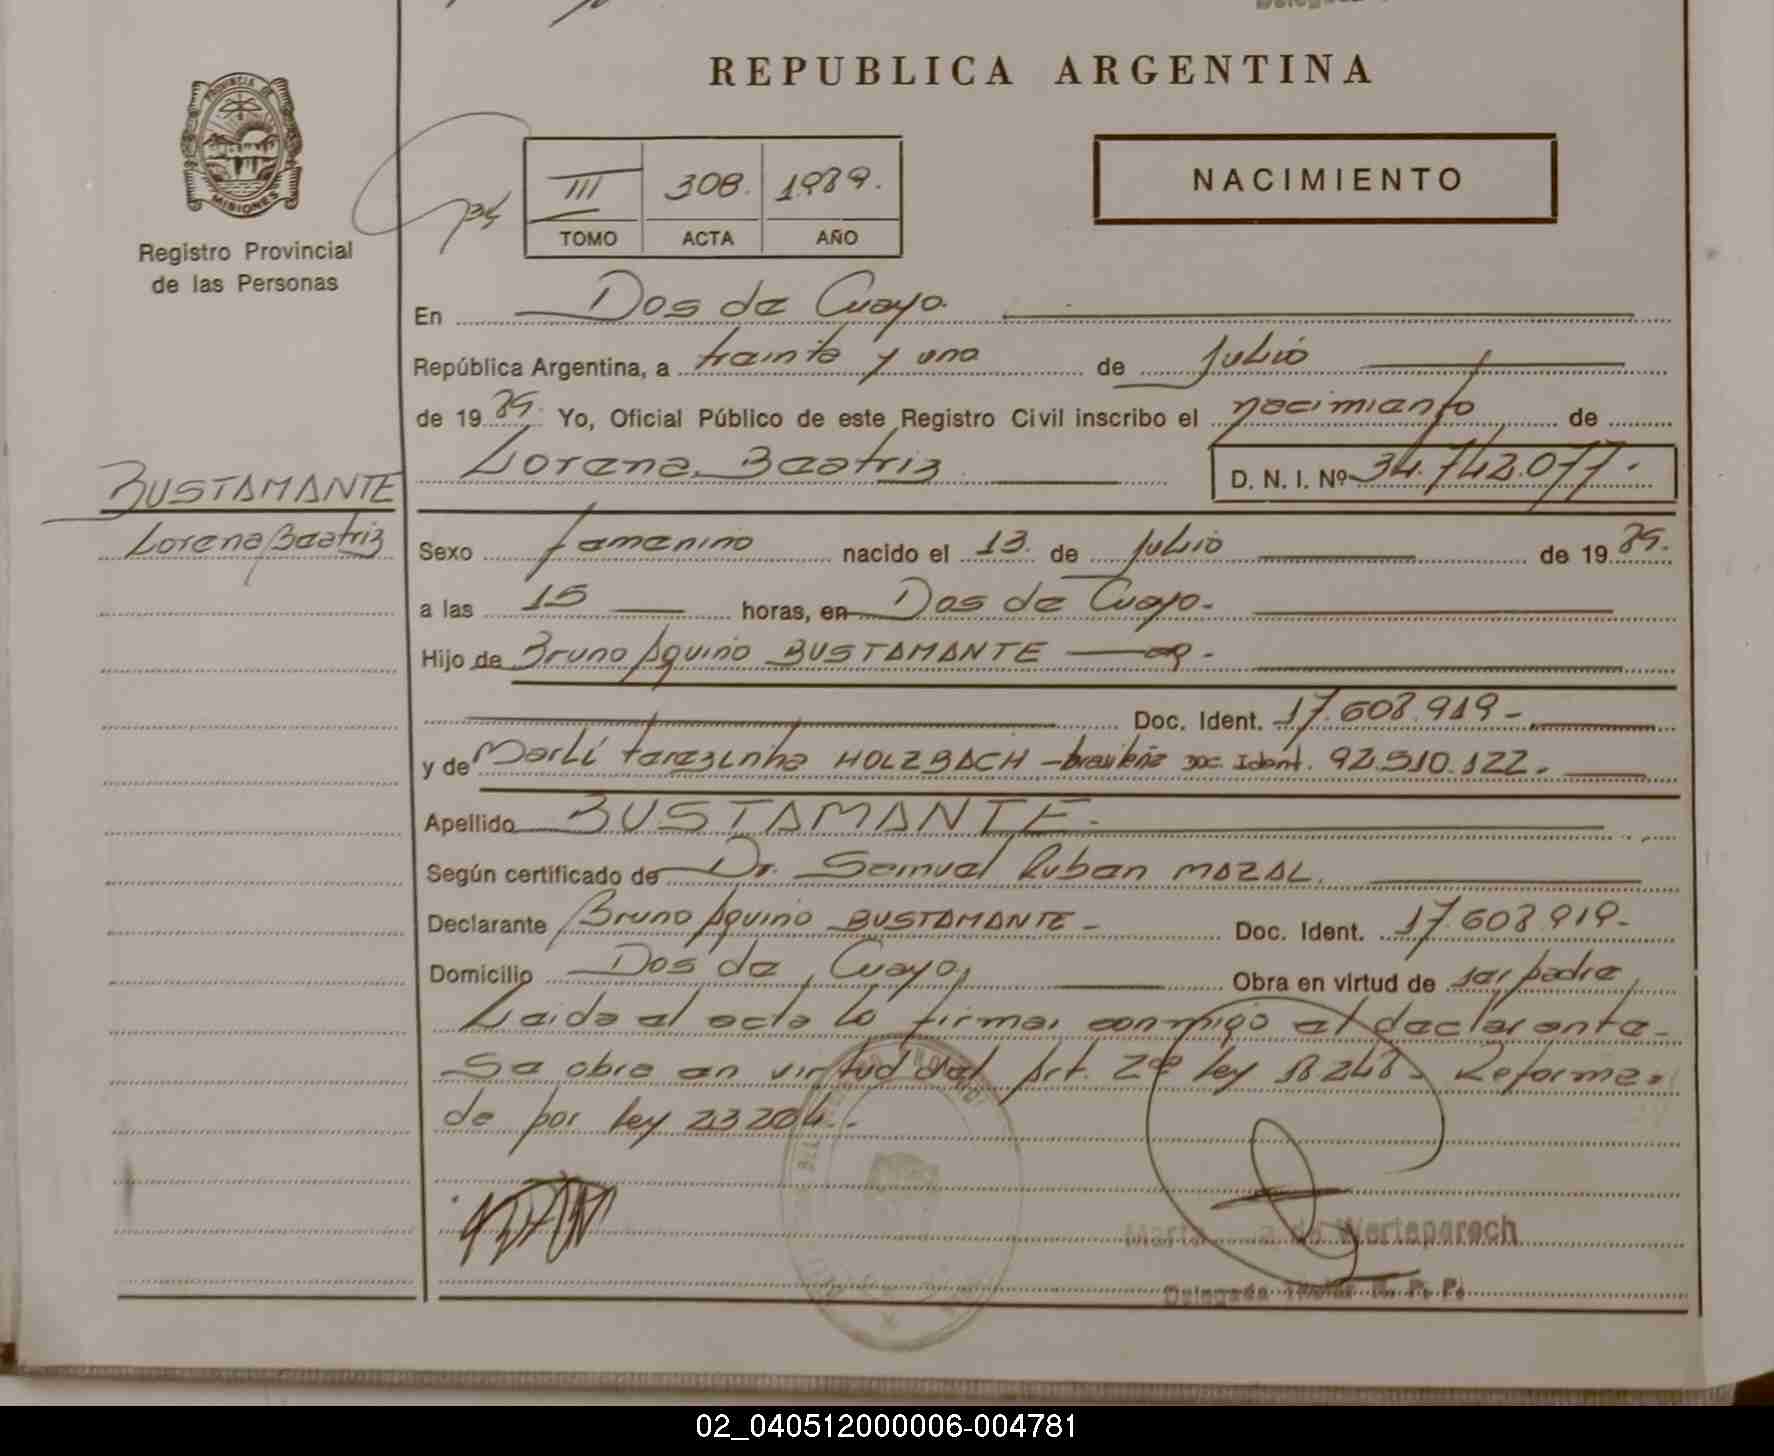 REPUBLICA ARGENTINA
PROVINCIA DE MISIONES
Registro Provincial
de las Personas
NACIMIENTO
III 308. 1989.
TOMO ACTA AÑO
En Dos de Mayo.
República Argentina, a treinta y uno de Julio
de 1989. Yo, Oficial Público de este Registro Civil inscribo el nacimiento de
Lorena Beatriz
D. N. I. Nº 34.742.077.
BUSTAMANTE
Lorena Beatriz
Sexo femenino nacido el 13. de Julio de 1989.
a las 15 horas, en Dos de Mayo.
Hijo de Bruno Aquino BUSTAMANTE
Doc. Ident. 17.608.919
y de Marlí terezinha HOLZBACH - brasileña Doc. Ident. 92.910.122.
Apellido BUSTAMANTE.
Según certificado de Dr. Samuel Ruben MAZAL.
Declarante Bruno Aquino BUSTAMANTE - Doc. Ident. 17.608.919-
Domicilio Dos de Mayo, Obra en virtud de ser padre
Leida el acta la firma, conmigo el declarante.
Se obra en virtud del Art. 2do ley 18248. Reforma-
da por ley 23204..
Marta de Wertaparoch
Delegada Titular R. P. P.
02_040512000006-004781